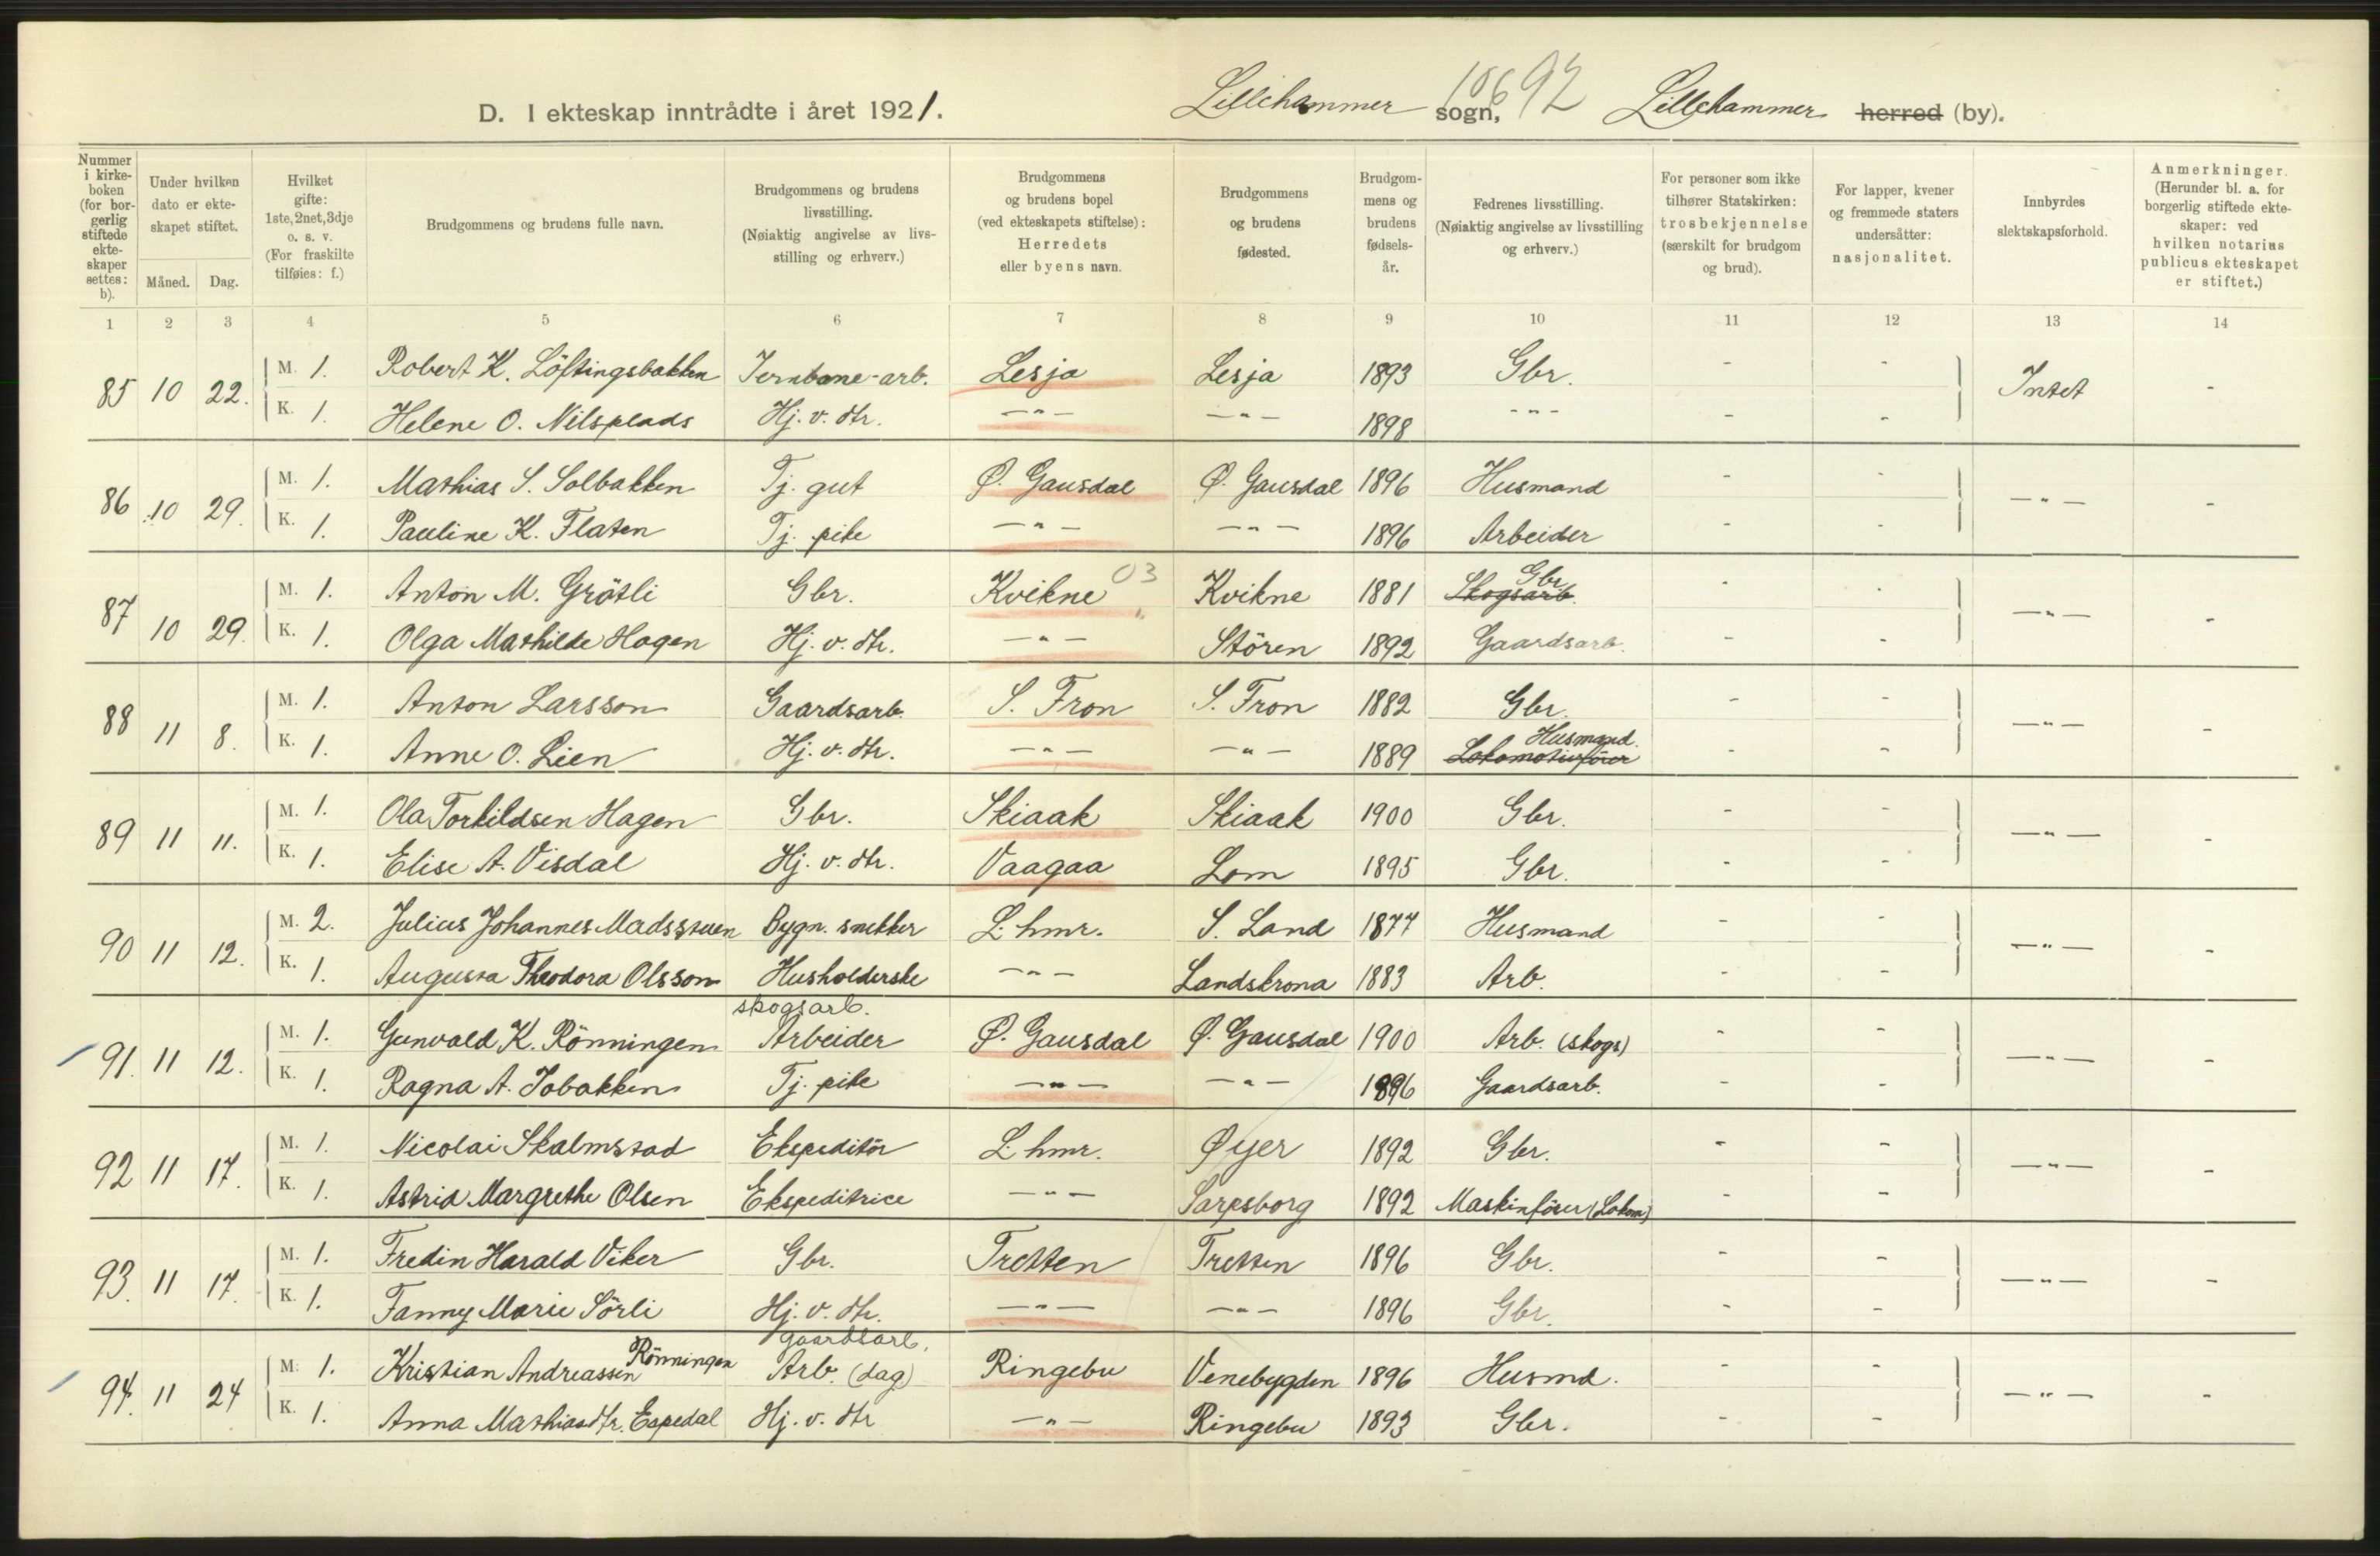 D. I ekteskap inntrådte i året 1921. Lillehammer sogn, 10692 Lillehammer herred (by).
Nummer i kirke-boken (for bor-gerlig stiftede ekte-skaper settes: b). | Under hvilken dato er ekte-skapet stiftet. Måned. Dag. | Hvilket gifte: 1ste, 2net, 3dje o. s. v. (For fraskilte tilføies: f.) | Brudgommens og brudens fulle navn. | Brudgommens og brudens livsstilling. (Nøiaktig angivelse av livs-stilling og erhverv.) | Brudgommens og brudens bopel (ved ekteskapets stiftelse): Herredets eller byens navn. | Brudgommens og brudens fødested. | Brudgom-mens og brudens fødsels-år. | Fedrenes livsstilling. (Nøiaktig angivelse av livsstilling og erhverv.) | For personer som ikke tilhører Statskirken: trosbekjennelse (særskilt for brudgom og brud). | For lapper, kvener og fremmede staters undersåtter: nasjonalitet. | Innbyrdes slektskapsforhold. | Anmerkninger. (Herunder bl. a. for borgerlig stiftede ekte-skaper: ved hvilken notarius publicus ekteskapet er stiftet.)
1 2 3 4 5 6 7 8 9 10 11 12 13 14
85 10 22. M. 1. Robert K. Löftingsbakken Jernbane-arb. Lesja Lesja 1893 Gbr. - - Intet -
K. 1. Helene O. Nilsplads Hj. v. dtr. -"- -"- 1898 -"- - -
86 10 29. M. 1. Mathias S. Solbakken Tj. gut Ø. Gausdal Ø. Gausdal 1896 Husmand - - -"- -
K. 1. Pauline K. Flaten Tj. pike -"- -"- 1896 Arbeider - -
87 10 29. M. 1. Anton M. Grötli Gbr. Kvikne 03 Kvikne 1881 Skogsarb. Gbr. - - -"- -
K. 1. Olga Mathilde Hagen Hj. v. dtr. -"- Stören 1892 Gaardsarb. - -
88 11 8. M. 1. Anton Larsson Gaardsarb. S. Fron S. Fron 1882 Gbr. - - -"- -
K. 1. Anne O. Lien Hj. v. dtr. -"- -"- 1889 Lokomotivförer Husmand. - -
89 11 11. M. 1. Ola Torkildsen Hagen Gbr. Skiaak Skiaak 1900 Gbr. - - -"- -
K. 1. Elise A. Visdal Hj. v. dtr. Vaagaa Lom 1895 Gbr. - -
90 11 12. M. 2. Julius Johannes Madsstuen Bygn. snekker L.hmr. S. Land 1877 Husmand - - -"- -
K. 1. Augusta Theodora Olsson Husholderske -"- Landskrona 1883 Arb. - -
skogsarb.
91. 11 12. M. 1. Gunvald K. Rönningen Arbeider Ø. Gausdal Ø. Gausdal 1900 Arb. (skogs) - - -"- -
K. 1. Ragna A. Jobakken Tj. pike -"- -"- 1896 Gaardsarb. - -
92 11 17. M. 1. Nicolai Skalmstad Ekspeditör L.hmr. Øyer 1892 Gbr. - - -"- -
K. 1. Astrid Margrethe Olsen Ekspeditrice -"- Sarpsborg 1892 Maskinförer (Lokom) - -
93. 11 17. M. 1. Fredin Harald Viker Gbr. Tretten Tretten 1896 Gbr. - - -"- -
K. 1. Fanny Marie Sörli Hj. v. dtr. -"- -"- 1896 Gbr. - -
gaardsarb.
94. 11 24 M. 1. Kristian Andreassen Rönningen Arb. (dag) Ringebu Venebygden 1896 Husmd. - - -"- -
K. 1. Anna Mathiasdtr. Espedal Hj. v. dtr -"- Ringebu 1893 Gbr. - -